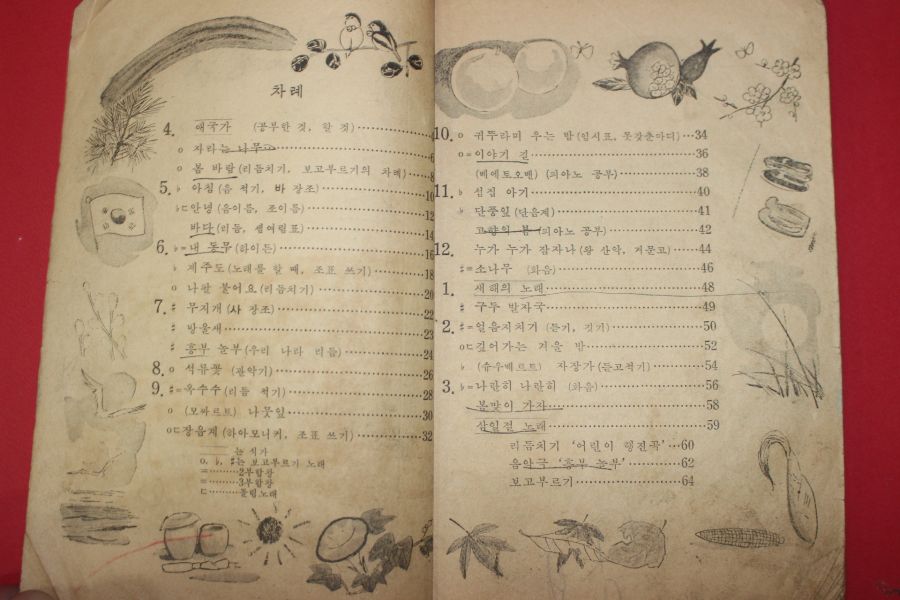 차례
4. 애국가 (공부한 것, 할 것) 4
o 자라는 나무 6
o 봄 바람 (리듬치기, 보고부르기의 차례) 8
5. ♭ 아침 (음 적기, 바 장조) 10
♭ㄷ 안녕 (음이름, 조이름) 12
바다 (리듬, 셈여림표) 14
6. ♭= 내 동무 (하이든) 16
♭ 제주도 (노래를 할 때, 조표 쓰기) 18
o 나팔 불어요 (리듬치기) 20
7. ♯ 무지개 (사 장조) 22
♯ 방울새 23
♯ 흥부 놀부 (우리 나라 리듬) 24
8. o 석류꽃 (관악기) 26
9. ♯= 옥수수 (리듬 적기) 28
o (모짜르트) 나뭇잎 30
oㄷ 장음계 (하아모니커, 조표 쓰기) 32
는 식가
o, ♭, ♯는 보고부르기 노래
= 2부합창
≡ 3부합창
ㄷ 돌림노래
10. o 귀뚜라미 우는 밤 (일시표, 못갖춘마디) 34
o= 이야기 길 36
(베에토오벤) (피아노 공부) 38
11. ♭ 섬집 아기 40
♭ 단풍잎 (단음계) 41
고향의 봄 (피아노 공부) 42
12. 누가 누가 잠자나 (왕 산악, 거문고) 44
♯= 소나무 (화음) 46
1. 새해의 노래 48
♯ 구두 발자국 49
2. ♯= 얼음지치기 (듣기, 짓기) 50
oㄷ 깊어가는 겨울 밤 52
♭ (슈우베르트) 자장가 (듣고적기) 54
3. ♭= 나란히 나란히 (화음) 56
봄맞이 가자 58
삼일절 노래 59
리듬치기 ‘어린이 행진곡’ 60
음악극 ‘흥부 놀부’ 62
보고부르기 64